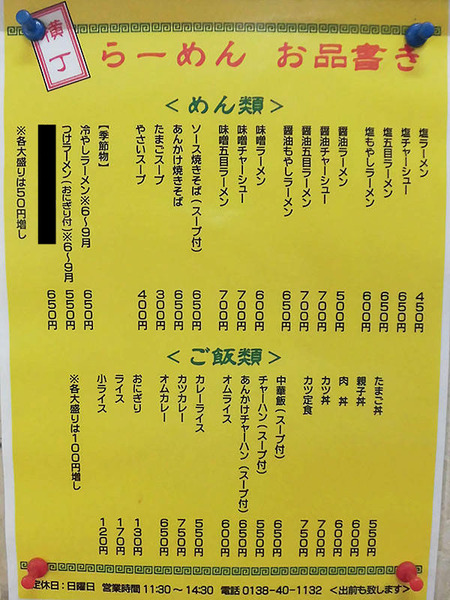 横丁
らーめん お品書き
<めん類>
塩ラーメン 450円
塩チャーシュー 650円
塩五目ラーメン 650円
塩もやしラーメン 600円
醤油ラーメン 500円
醤油チャーシュー 700円
醤油五目ラーメン 700円
醤油もやしラーメン 650円
味噌ラーメン 600円
味噌チャーシュー 700円
味噌五目ラーメン 700円
ソース焼きそば(スープ付) 650円
あんかけ焼きそば 650円
たまごスープ 300円
やさいスープ 400円
【季節物】
冷やしラーメン※6〜9月 650円
つけラーメン(おにぎり付)※6〜9月 550円
650円
※各大盛りは50円増し
<ご飯類>
たまご丼 550円
親子丼 600円
肉丼 600円
カツ丼 700円
カツ定食 750円
中華飯(スープ付) 650円
チャーハン(スープ付) 550円
あんかけチャーハン(スープ付) 650円
オムライス 600円
カレーライス 550円
カツカレー 750円
オムカレー 650円
おにぎり 130円
ライス 170円
小ライス 120円
※各大盛りは100円増し
定休日:日曜日 営業時間11:30〜14:30 電話0138-40-1132 <出前も致します>